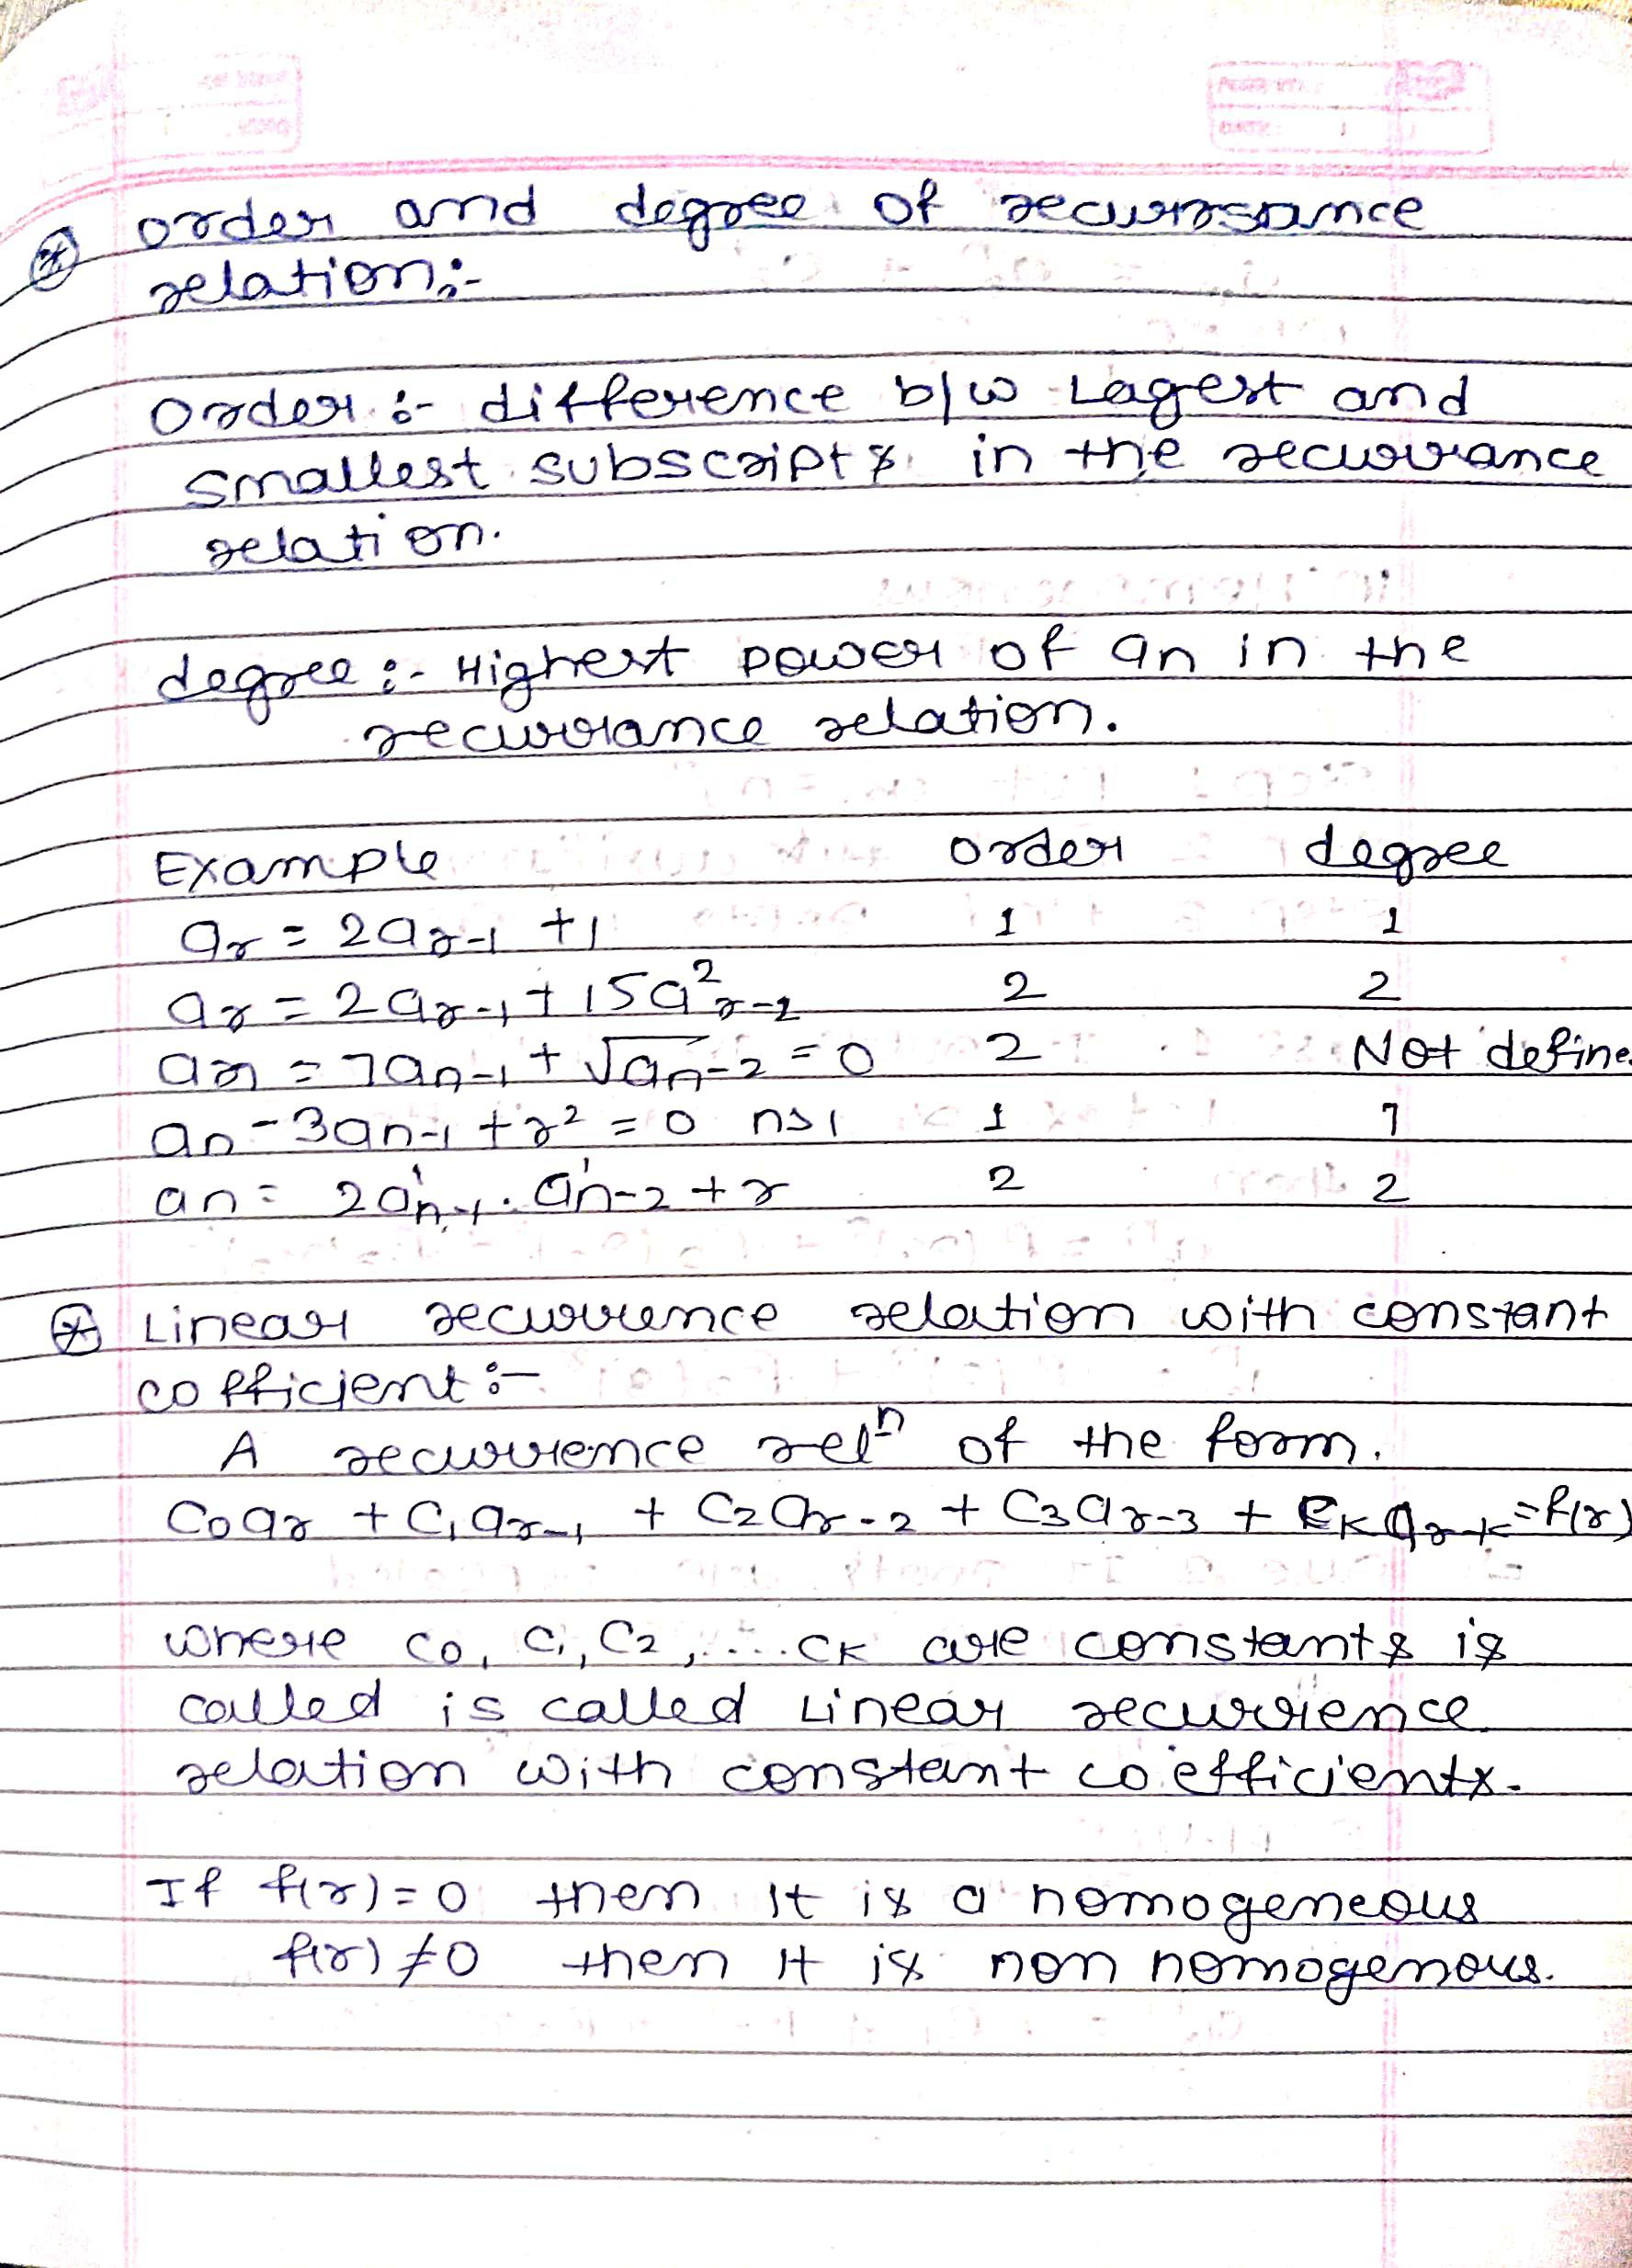 order and degree of recurrsance
relation:-
Order :- difference b/w Lagest and
smallest subscripts in the recurrance
relation.
degree :- Highest power of an in the
recurrance relation.
Example order degree
ar = 2ar-1 + 1 1 1
ar = 2ar-1 + 15a²r-2 2 2
an = 7an-1 + √an-2 = 0 2 Not define
an - 3an-1 + r² = 0 n>1 1 1
an = 2a¹n-1 . a¹n-2 + r 2 2
Linear recurrence relation with constant
cofficient :-
A recurrence relⁿ of the form.
C0ar + C1ar-1 + C2ar-2 + C3ar-3 + Ckar-k = f(r)
where c0, c1, c2, ....ck are constants is
called is called Linear recurrence
relation with constant coefficients.
If f(r) = 0 then it is a homogeneous
f(r) ≠ 0 then it is non homogenous.